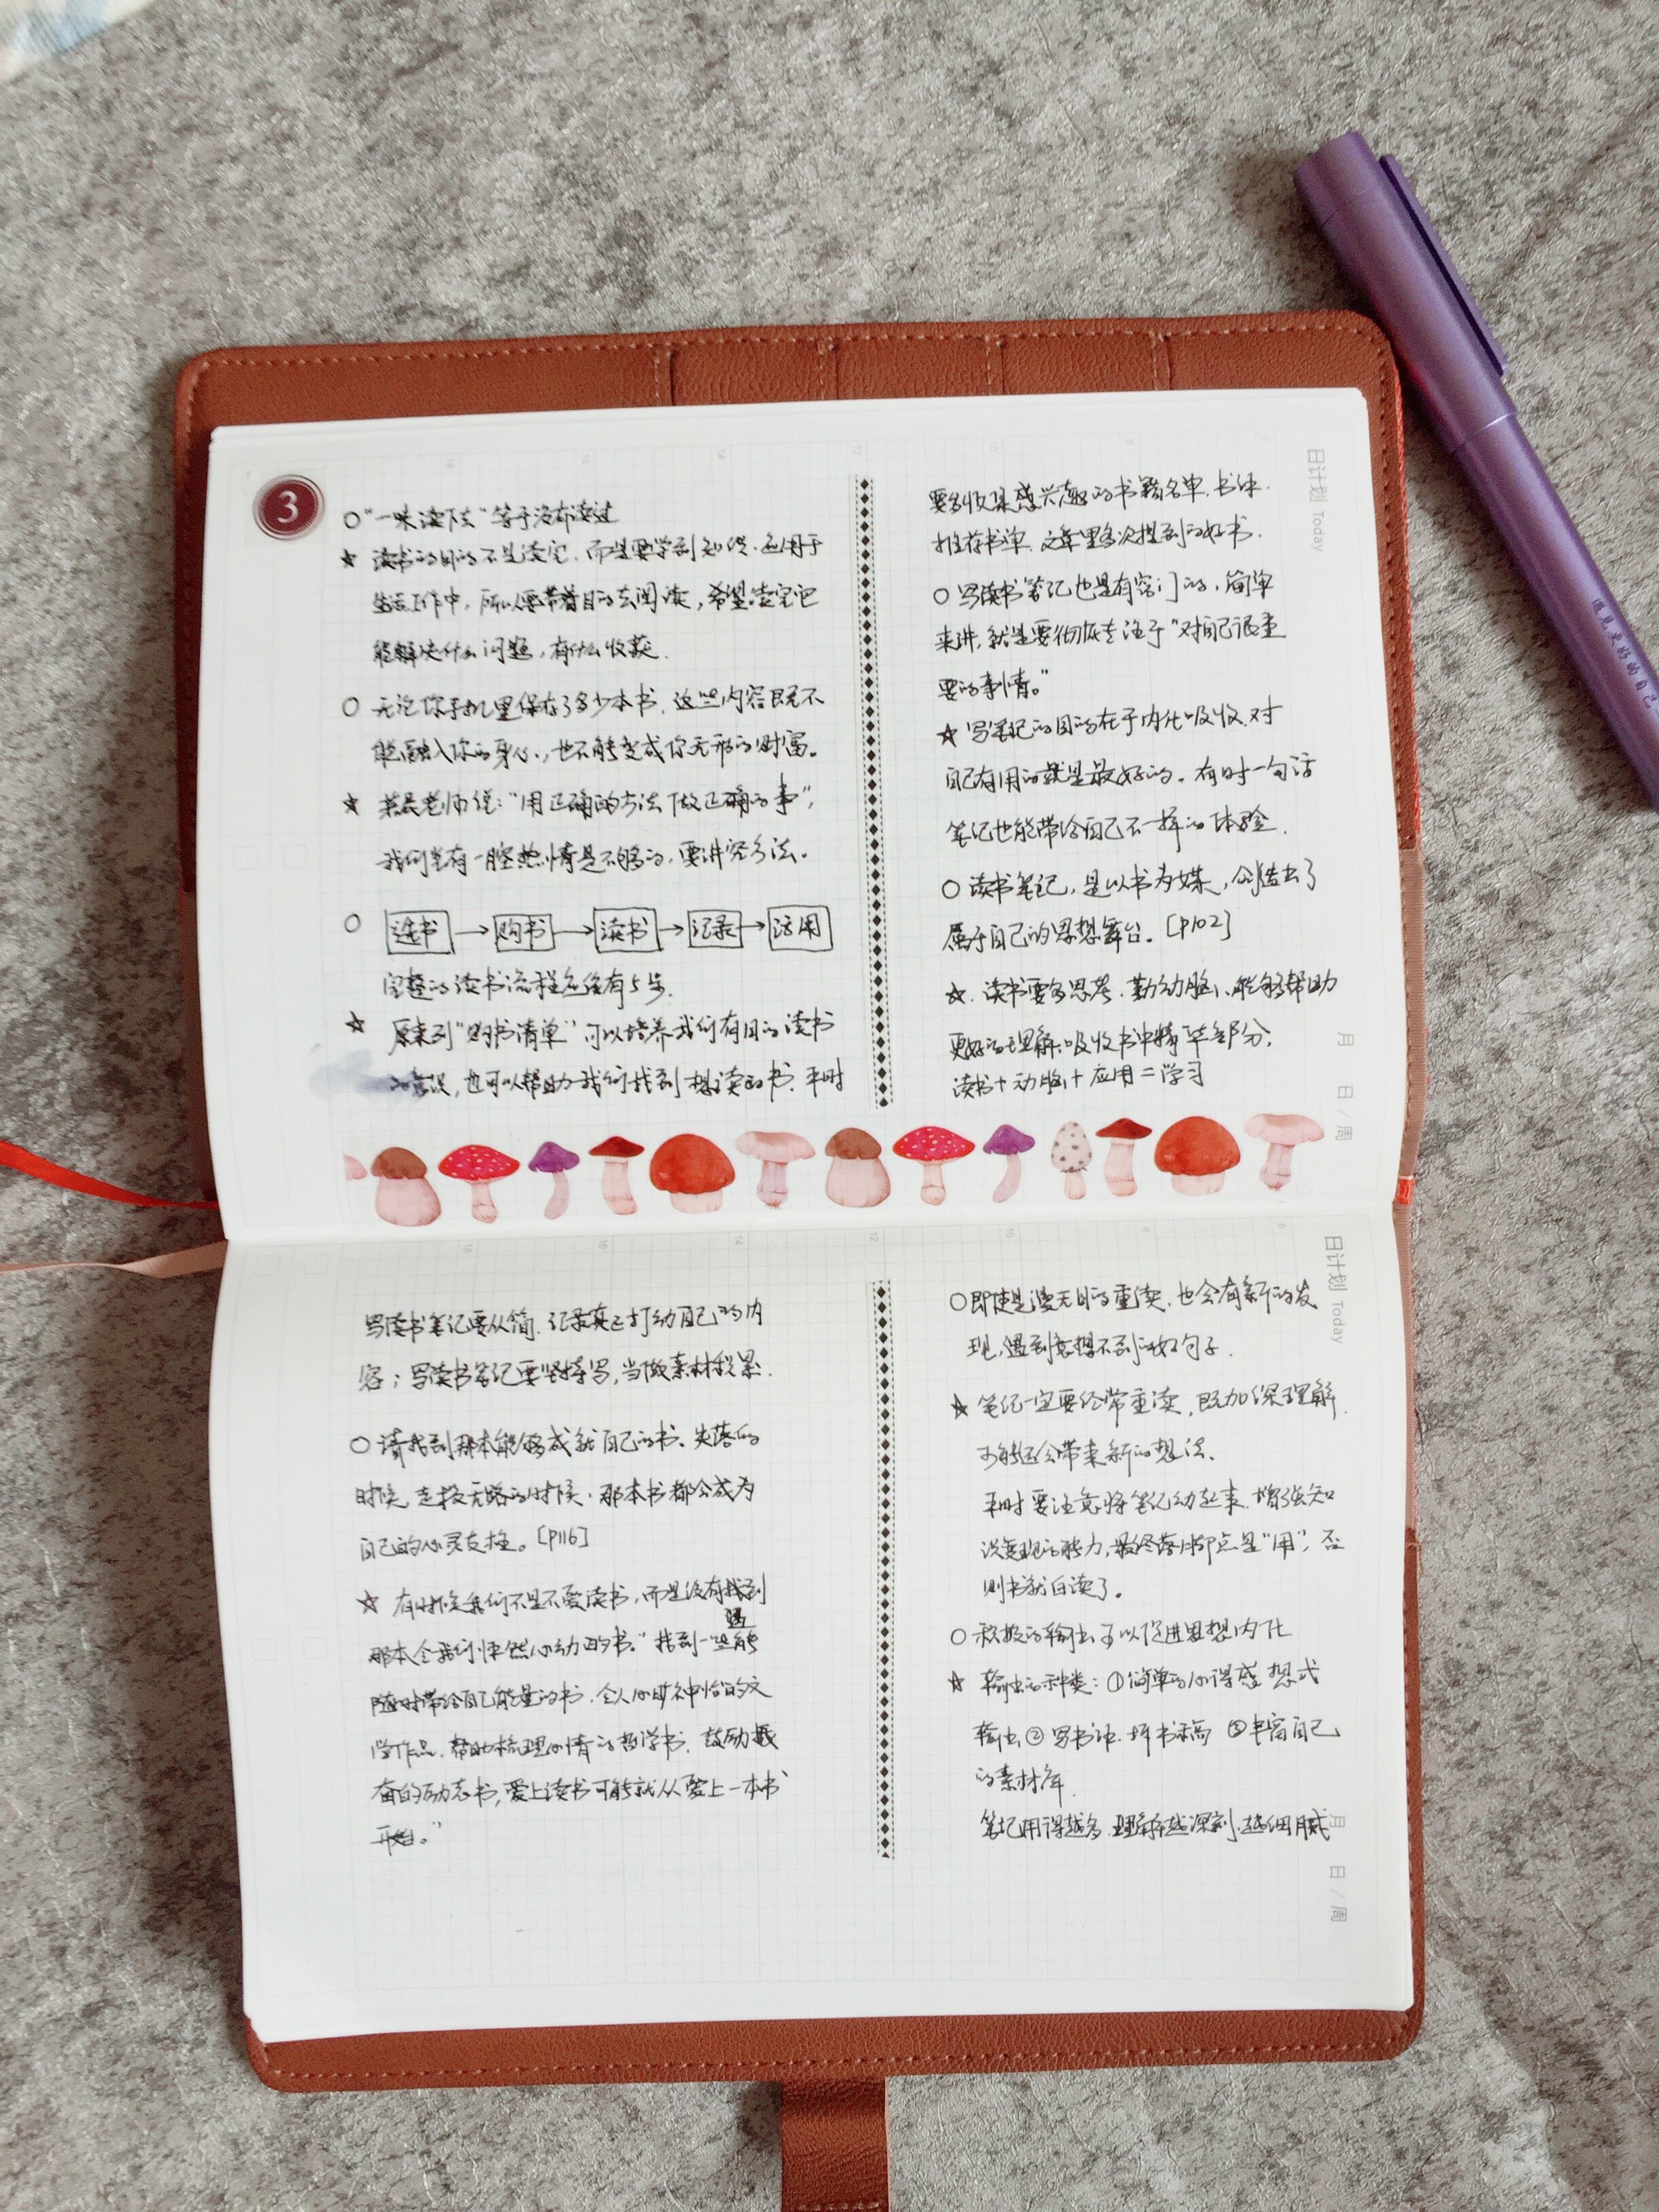 3
○“一味读下去”等于没有读过
☆ 读书的目的不是读完,而是要学到知识,运用于
生活工作中,所以要带着目的去阅读,希望读完它
能解决什么问题,有什么收获.
○ 无论你手机里保存了多少本书,这些内容既不
能融入你的身心,也不能变成你无形的财富。
☆ 老师说:“用正确的方法做正确的事”,
我们光有一腔热情是不够的,要讲究方法.
○ 选书→购书→读书→记录→活用
完整的读书流程应该有5步.
☆ 原来列“购书清单”可以培养我们有目的读书
的意识,也可以帮助我们找到想读的书,平时
要多收集感兴趣的书籍名单,书评.
推荐书单,文章里多次提到的好书.
○写读书笔记也是有窍门的,简单
来讲,就是要彻底专注于“对自己很重
要的事情。”
☆写笔记的目的在于内化吸收,对
自己有用的就是最好的.有时一句话
笔记也能带给自己不一样的体验.
○读书笔记,是以书为媒,创造出了
属于自己的思想舞台。[P102]
☆.读书要多思考,勤动脑,能够帮助
更好的理解、吸收书中精华部分,
读书+动脑+应用=学习
日计划 Today
月 日/周
写读书笔记要从简,记录真正打动自己的内
容;写读书笔记要坚持写,当做素材积累.
○请找到那本能够成就自己的书、失落的
时候,走投无路的时候,那本书都会成为
自己的心灵支柱。[P116]
☆ 有时候我们不是不爱读书,而是没有遇到
那本令我们怦然心动的书.”找到一些能
随时带给自己能量的书,令人心旷神怡的文
学作品,帮助梳理心情的哲学书,鼓励振
奋的励志书,爱上读书可能就从爱上一本书
开始。”
○即使是漫无目的重读,也会有新的发
现,遇到意想不到的好句子.
☆笔记一定要经常重读,既加深理解.
可能还会带来新的想法.
平时要注意将笔记动起来,增强知
识变现的能力,最终落脚点是“用”,否
则书就白读了.
○积极的输出可以促进思想内化
☆ 输出的种类:①简单的心得感想式
输出②写书评.拆书稿 ③丰富自己
的素材库.
笔记用得越多,理解越深刻,越细腻
日计划 Today
月 日/周
遇见更好的自己